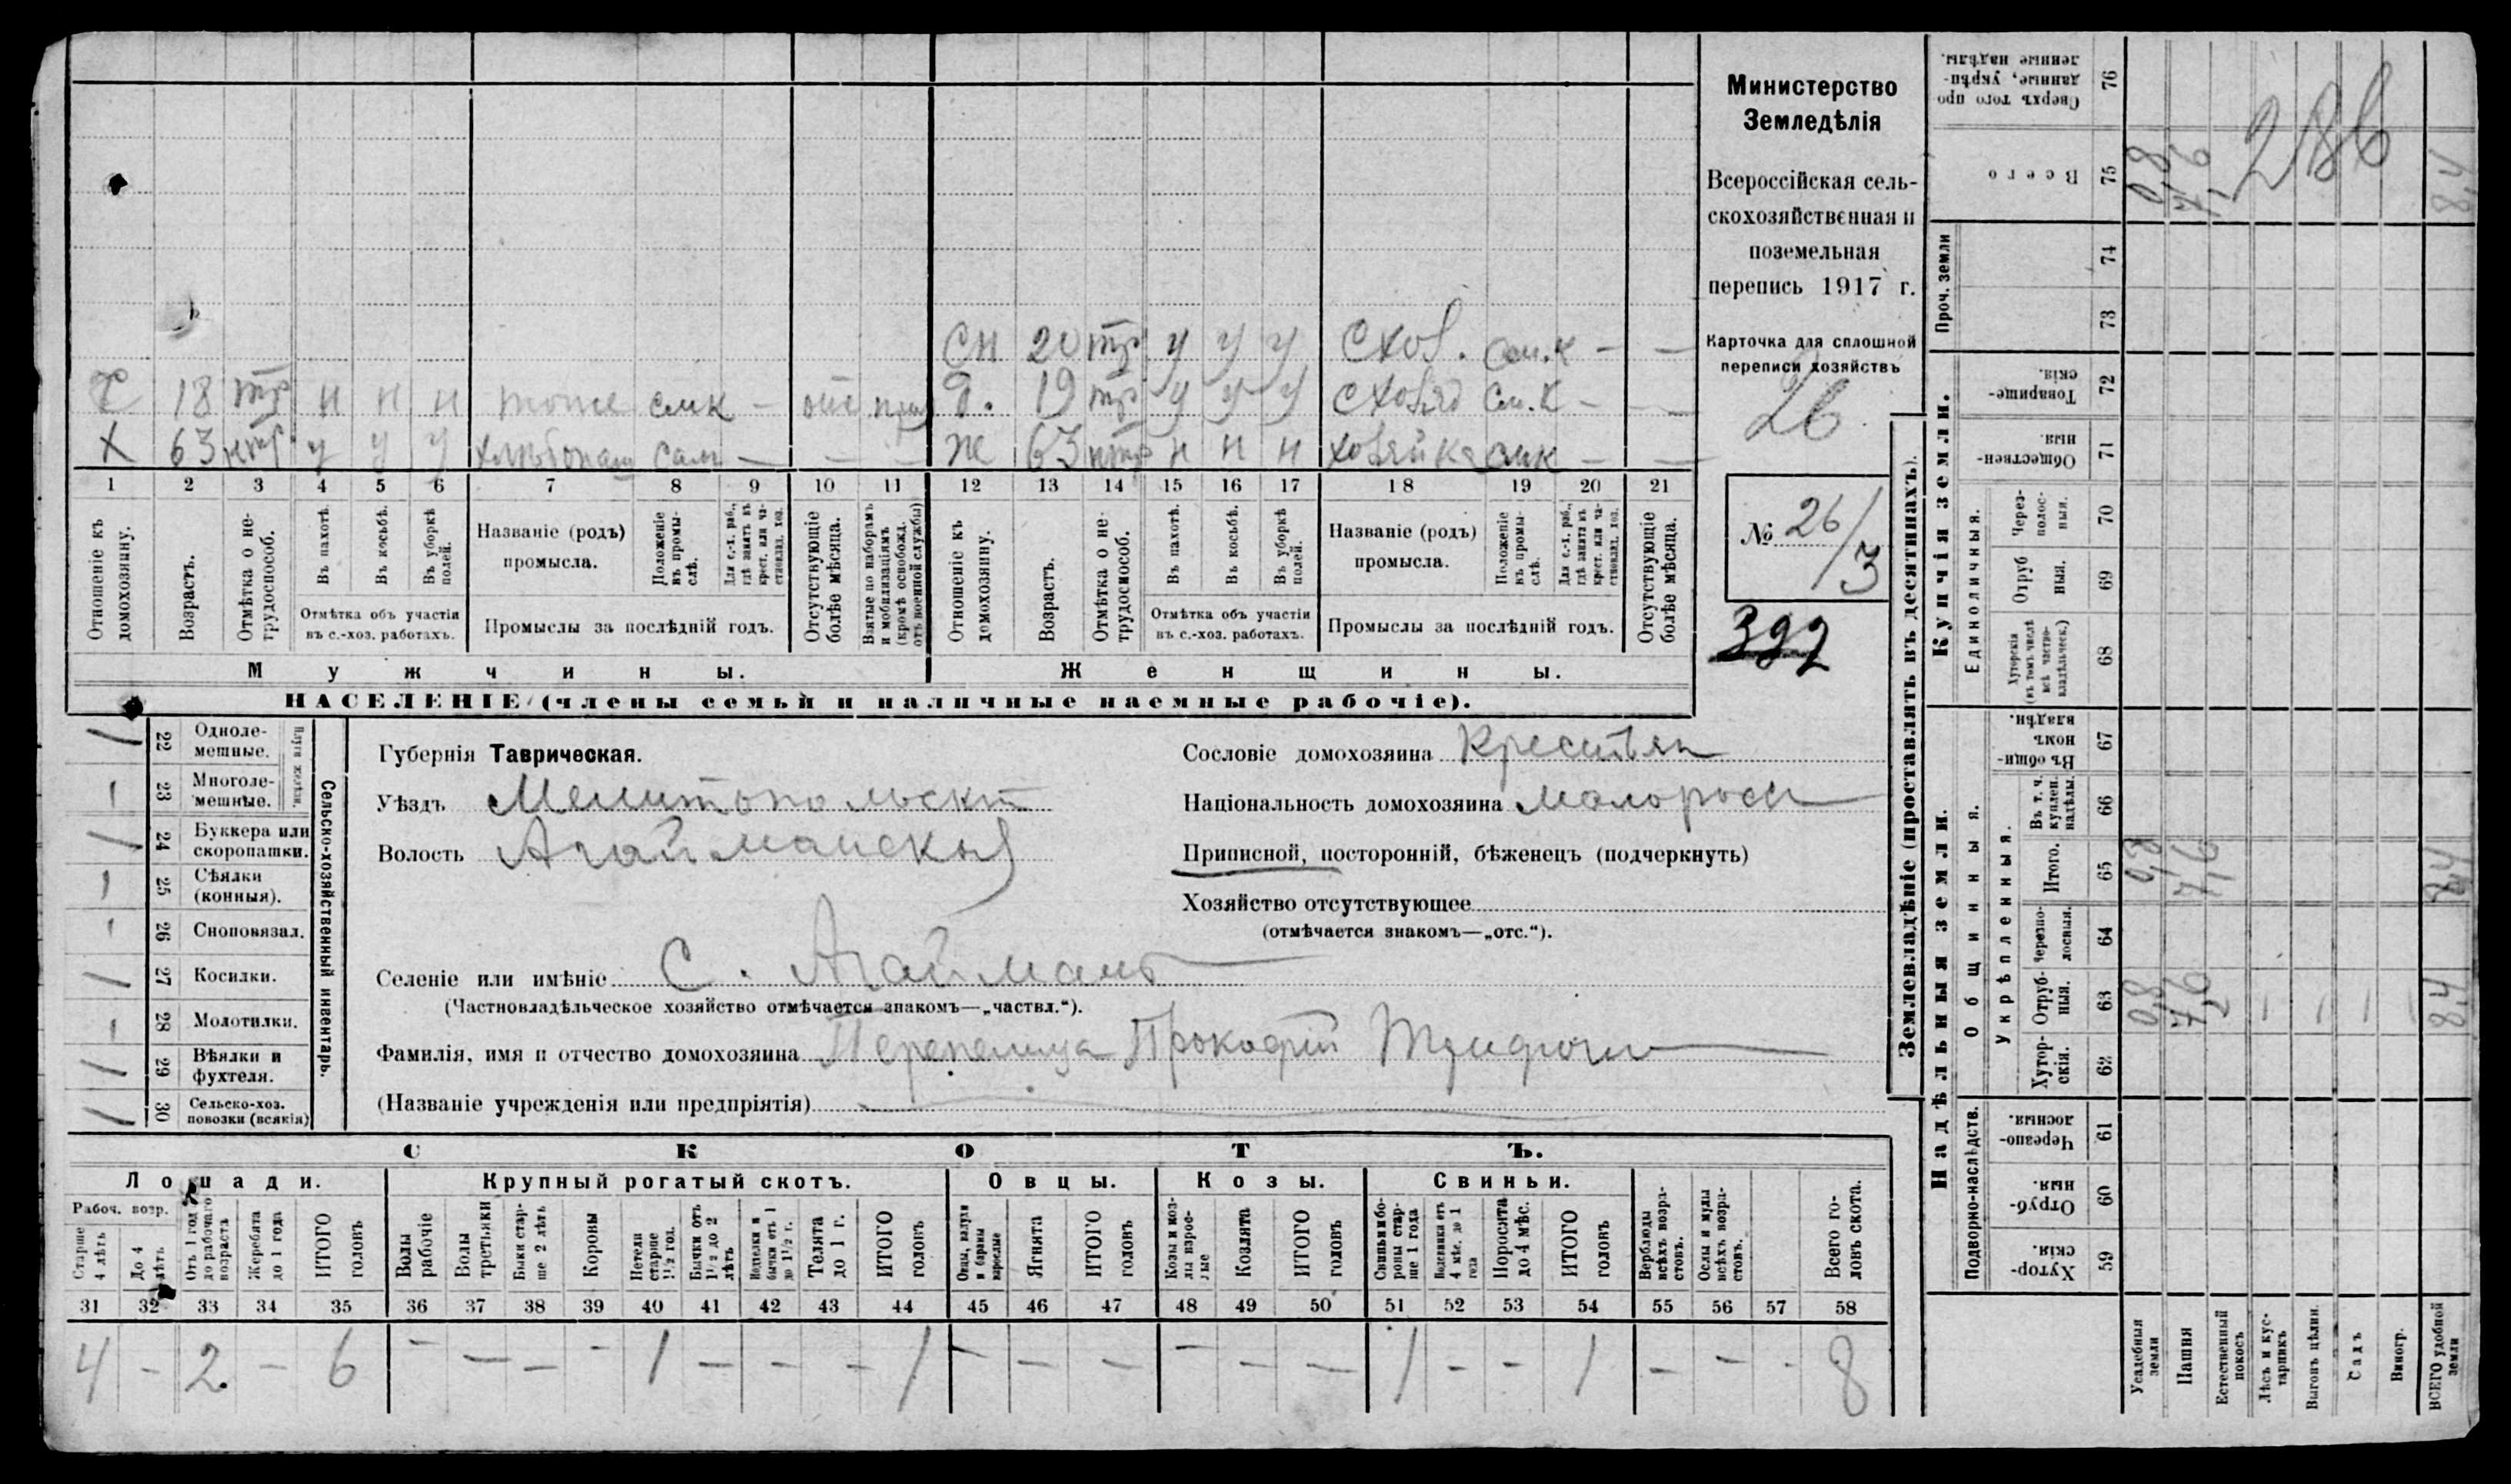 СН 20 тр у у у Схоз. см.к — —
С 18 тр н н н тоже смк — отс
Д. 19 тр у у у схозяд см.к — —
Х 63 нтр у у у хлѣбопаш сам — — —
Ж 63 нтр н н н хозяйка смк — —
1 2 3 4 5 6 7 8 9 10 11 12 13 14 15 16 17 18 19 20 21
Отношеніе къ домохозяину.
Возрастъ.
Отмѣтка о не-
трудоспособ.
Въ пахотѣ.
Въ косьбѣ.
Въ уборкѣ
полей.
Отмѣтка объ участіи
въ с.-хоз. работахъ.
Названіе (родъ)
промысла.
Положеніе
въ промы-
слѣ.
Для с.-х. раб.,
гдѣ занятъ въ
крест. или ча-
стновлад. хоз.
Промыслы за послѣдній годъ.
Отсутствующіе
болѣе мѣсяца.
Взятые по наборамъ
и мобилизаціямъ
(кромѣ освобожд.
отъ военной службы)
Отношеніе къ
домохозяину.
Возрастъ.
Отмѣтка о не-
трудоспособ.
Въ пахотѣ.
Въ косьбѣ.
Въ уборкѣ
полей.
Отмѣтка объ участіи
въ с.-хоз. работахъ.
Названіе (родъ)
промысла.
Положеніе
въ промы-
слѣ.
Для с.-х. раб.,
гдѣ занята въ
крест. или ча-
стновлад. хоз.
Промыслы за послѣдній годъ.
Отсутствующіе
болѣе мѣсяца.
Мужчины.
Женщины.
НАСЕЛЕНІЕ (члены семьи и наличные наемные рабочіе).
Министерство
Земледѣлія
Всероссійская сель-
скохозяйственная и
поземельная
перепись 1917 г.
Карточка для сплошной
переписи хозяйствъ
26
№ 26/3
392
22 Одноле-
мешные.
23 Многоле-
мешные.
Плуги желѣзн.
24 Буккера или
скоропашки.
25 Сѣялки
(конныя).
26 Сноповязал.
27 Косилки.
28 Молотилки.
29 Вѣялки и
фухтеля.
30 Сельско-хоз.
повозки (всякія)
Сельско-хозяйственный инвентарь.
Губернія Таврическая.
Уѣздъ Мелитопольскій
Волость Агайманская
Селеніе или имѣніе С. Агайманъ
(Частновладѣльческое хозяйство отмѣчается знакомъ—„частвл.“).
Фамилія, имя и отчество домохозяина Перепелица Прокофій
(Названіе учрежденія или предпріятія)
Сословіе домохозяина Крестьян
Національность домохозяина малоросс
Приписной, посторонній, бѣженецъ (подчеркнуть)
Хозяйство отсутствующее
(отмѣчается знакомъ—„отс.“).
СКОТЪ.
Лошади.
Крупный рогатый скотъ.
Овцы.
Козы.
Свиньи.
Рабоч. возр.
Старше
4 лѣтъ
До 4
лѣтъ
Отъ 1 год
до рабочаго
возраста
Жеребята
до 1 года
ИТОГО
головъ
Волы
рабочіе
Волы
третьяки
Быки стар-
ше 2 лѣтъ
Коровы
Нетели
старше
1½ год.
Бычки отъ
1½ до 2
лѣтъ
Неделки и
бычки отъ 1
до 1½ г.
Телята
до 1 г.
ИТОГО
головъ
Овцы, валухи
и бараны
взрослые
Ягнята
ИТОГО
головъ
Козы и коз-
лы взрос-
лые
Козлята
ИТОГО
головъ
Свиньи и бо-
ровы стар-
ше 1 года
Подсвинки отъ
4 мѣс. до 1
года
Поросята
до 4 мѣс.
ИТОГО
головъ
Верблюды
всѣхъ возра-
стовъ.
Ослы и мулы
всѣхъ возра-
стовъ.
Всего го-
ловъ скота.
31 32 33 34 35 36 37 38 39 40 41 42 43 44 45 46 47 48 49 50 51 52 53 54 55 56 57 58
4 — 2 — 6 — — — — 1 — — — 1 — — — — — — 1 — — 1 — — - 8
Землевладѣніе (проставлять въ десятинахъ).
Купчія земли.
Надѣльныя земли.
Проч. земли
Сверхъ того про-
данные, укрѣп-
ленные надѣлы.
76
Всего
75
74
73
Товарище-
скія.
72
Обществен-
ныя.
71
Единоличныя.
Через-
полос-
ныя.
70
Отруб
ныя.
69
Хуторскія
(въ томъ числѣ
всѣ частно-
владѣльческ.)
68
Общинныя.
Въ общин-
номъ
владѣн.
67
Укрѣпленныя.
Въ т. ч.
куплен.
надѣлы.
66
Итого.
65
Черезпо-
лосныя.
64
Отруб-
ныя.
63
Хутор-
скія.
62
Подворно-наслѣдств.
Черезпо-
лосныя.
61
Отруб-
ныя.
60
Хутор-
скія.
59
Усадебныя
земли
Пашня
Естественный
покосъ
Лѣсъ и кус-
тарникъ
Выгонъ цѣлин.
Садъ
Виногр.
ВСЕГО удобной
земли
0,8 7,6 8,4
0,8 7,6 8,4
0,8 7,6 8,4
286